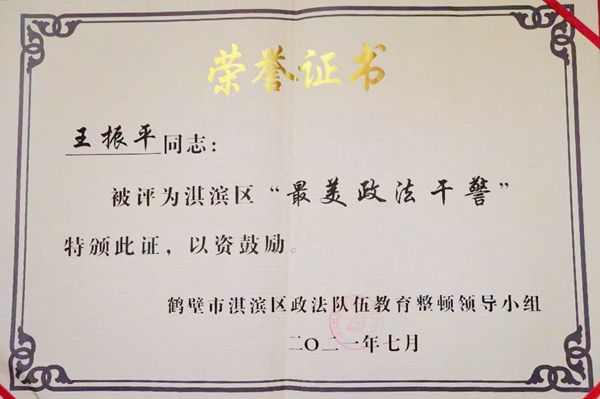 荣誉证书
王振平同志：
被评为淇滨区“最美政法干警”
特颁此证，以资鼓励。
鹤壁市淇滨区政法队伍教育整顿领导小组
二〇二一年七月